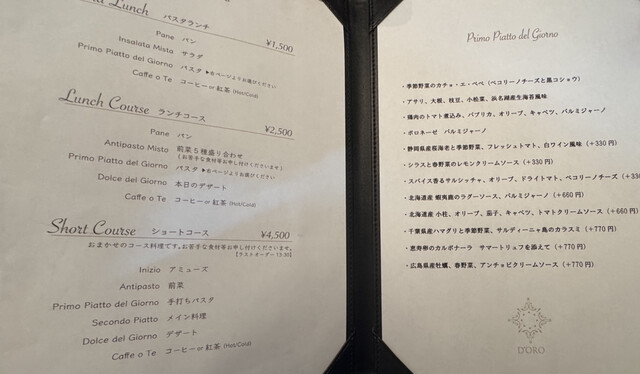 Lunch パスタランチ
¥1,500
Pane パン
Insalata Mista サラダ
Primo Piatto del Giorno パスタ ▶右ページよりお選びください
Caffe o Te コーヒー or 紅茶 (Hot/Cold)
Lunch Course ランチコース
¥2,500
Pane パン
Antipasto Misto 前菜５種盛り合わせ
(お苦手な食材等お申し付けくださいませ)
Primo Piatto del Giorno パスタ ▶右ページよりお選びください
Dolce del Giorno 本日のデザート
Caffe o Te コーヒー or 紅茶 (Hot/Cold)
Short Course ショートコース
¥4,500
おまかせのコース料理です。お苦手な食材等お申し付けくださいませ。
【ラストオーダー 13:30】
Inizio アミューズ
Antipasto 前菜
Primo Piatto del Giorno 手打ちパスタ
Secondo Piatto メイン料理
Dolce del Giorno デザート
Caffe o Te コーヒー or 紅茶 (Hot/Cold)
Primo Piatto del Giorno
・季節野菜のカチョ・エ・ペペ（ペコリーノチーズと黒コショウ）
・アサリ、大根、枝豆、小松菜、浜名湖産生海苔風味
・鶏肉のトマト煮込み、パプリカ、オリーブ、キャベツ、パルミジャーノ
・ボロネーゼ パルミジャーノ
・静岡県産桜海老と季節野菜、フレッシュトマト、白ワイン風味（＋330円）
・シラスと春野菜のレモンクリームソース（＋330円）
・スパイス香るサルシッチャ、オリーブ、ドライトマト、ペコリーノチーズ（＋33
・北海道産 蝦夷鹿のラグーソース、パルミジャーノ（＋660円）
・北海道産 小柱、オリーブ、茄子、キャベツ、トマトクリームソース（＋660円）
・千葉県産ハマグリと季節野菜、サルディーニャ島のカラスミ（＋770円）
・恵寿卵のカルボナーラ サマートリュフを添えて（＋770円）
・広島県産牡蠣、春野菜、アンチョビクリームソース（＋770円）
D'ORO